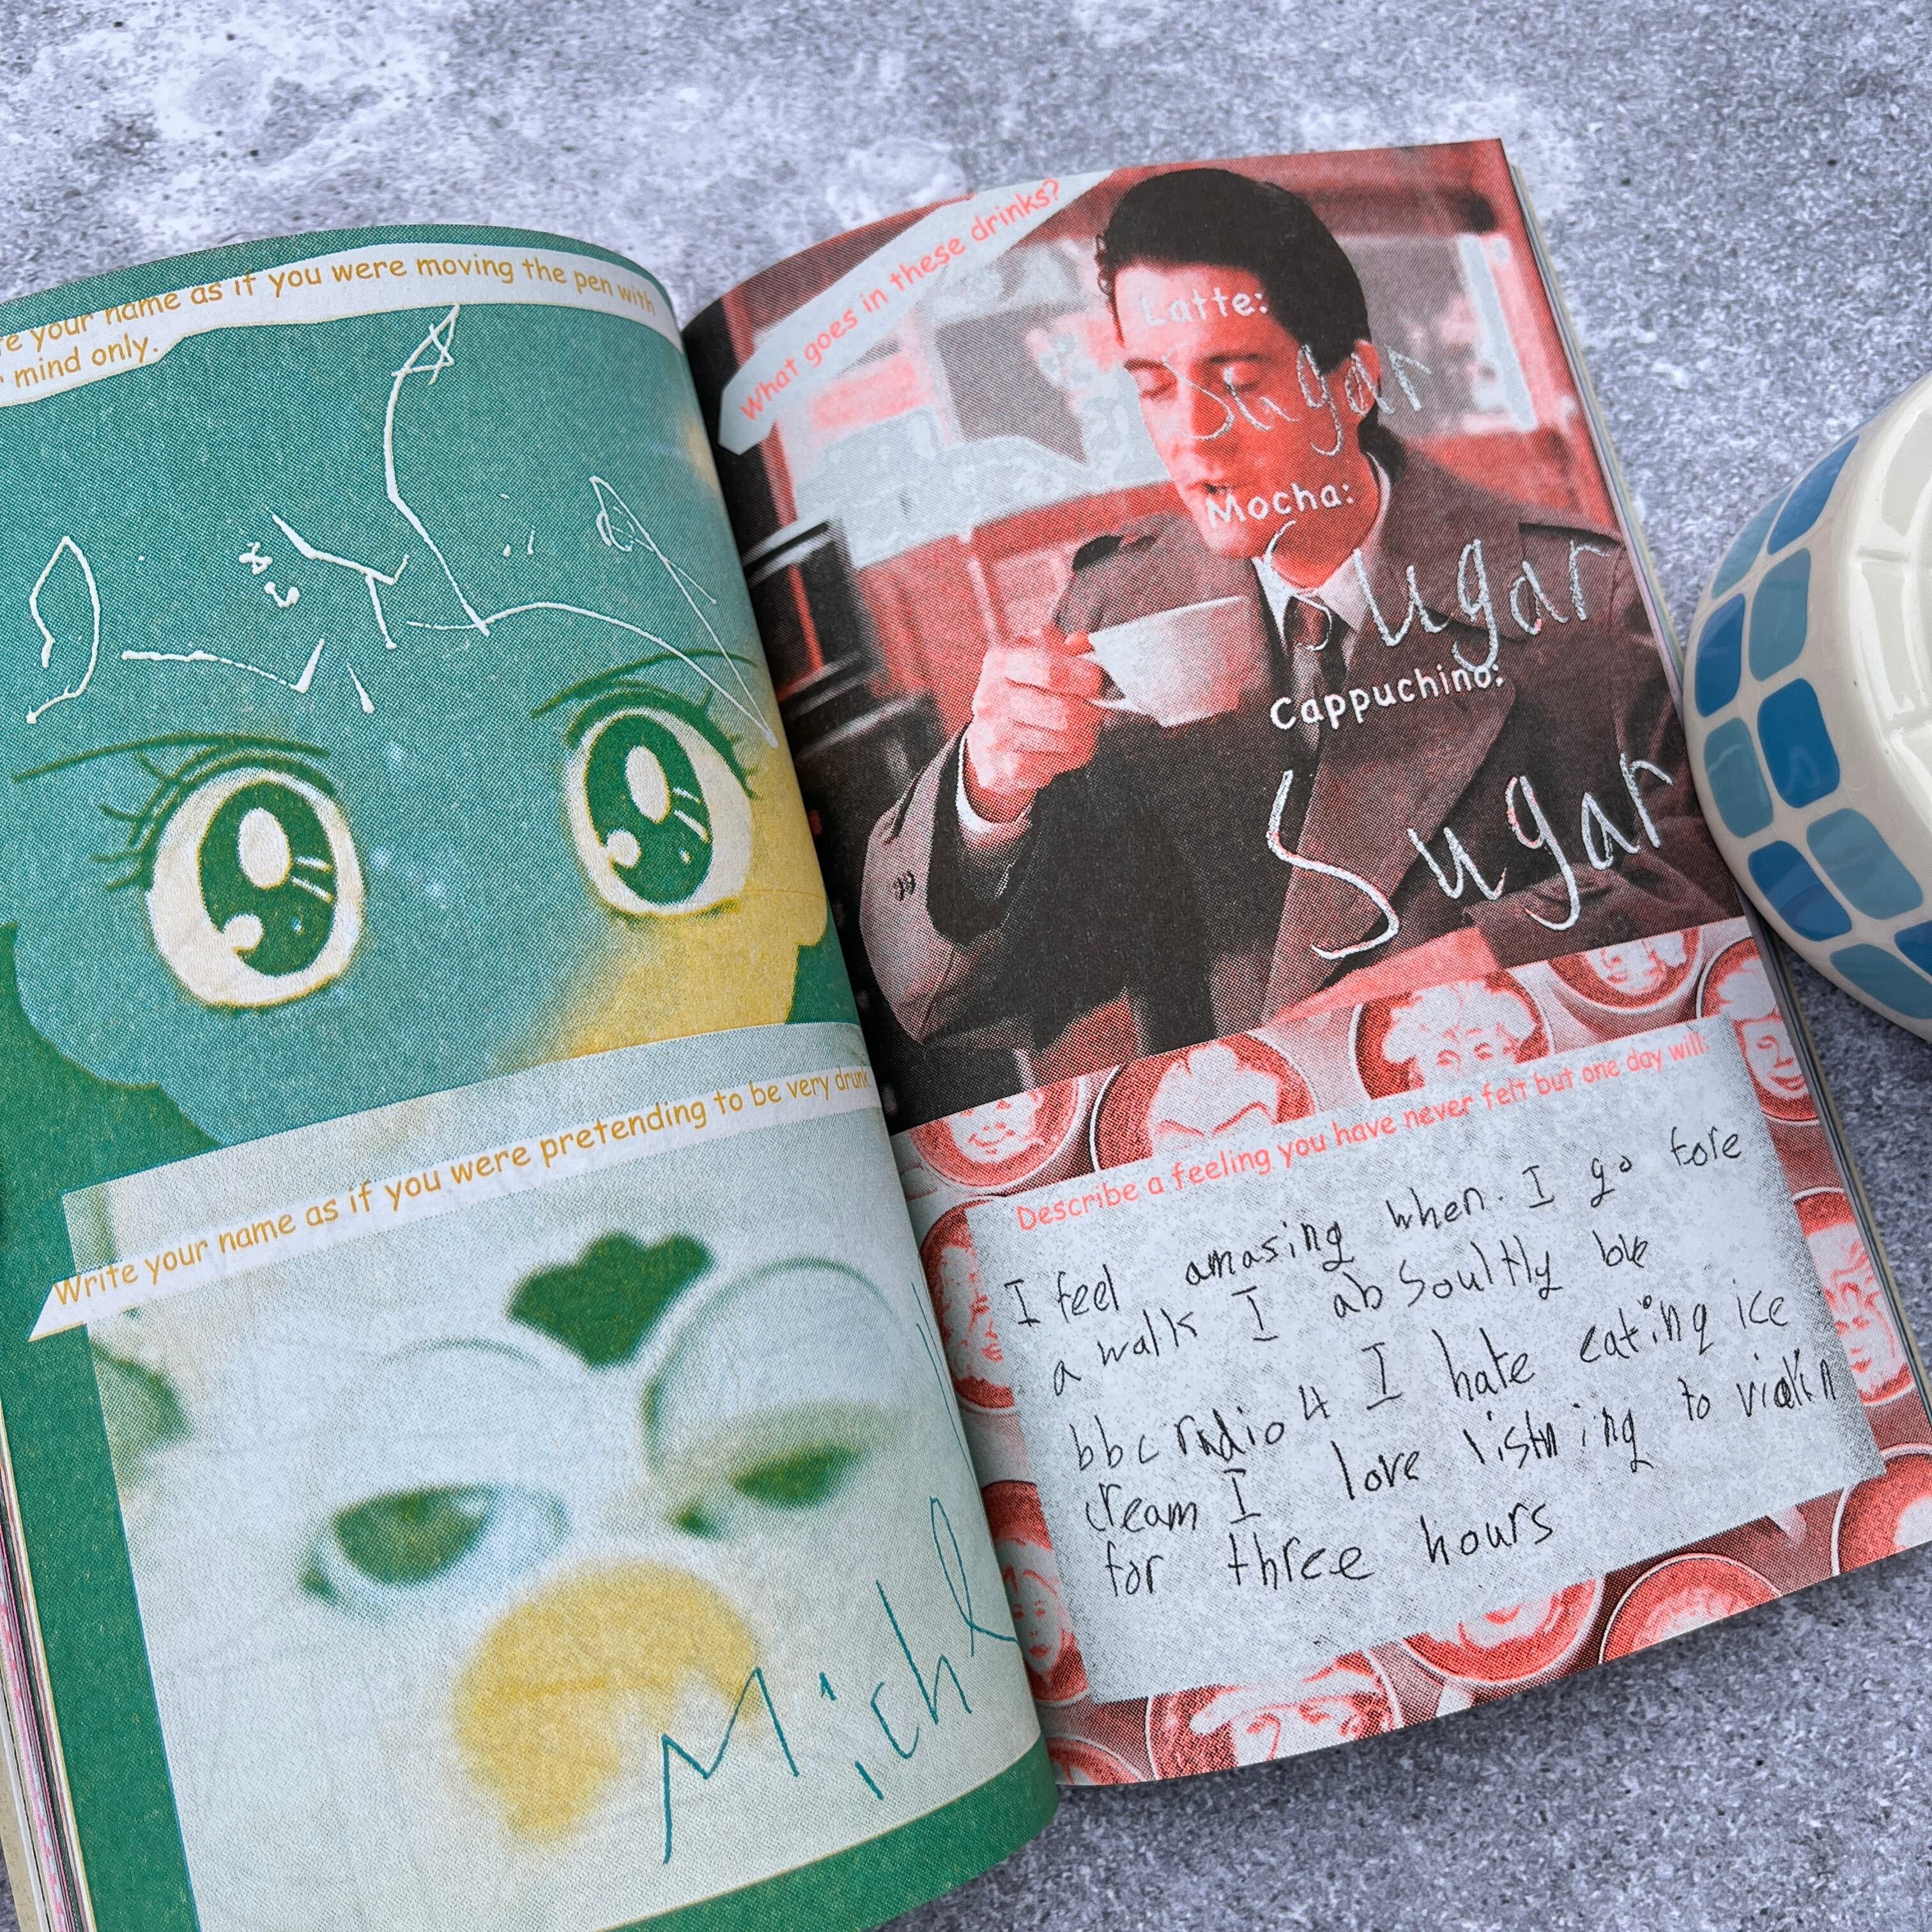 re your name as if you were moving the pen with
r mind only.
Write your name as if you were pretending to be very drunk
Mich
What goes in these drinks?
Latte:
Sugar
Mocha:
Sugar
Cappuchino:
Sugar
Describe a feeling you have never felt but one day will:
I feel amasing when. I go fore
a walk I absoultly
bbc radio 4 I hate eating ice
cream I love listning to violin
for three hours